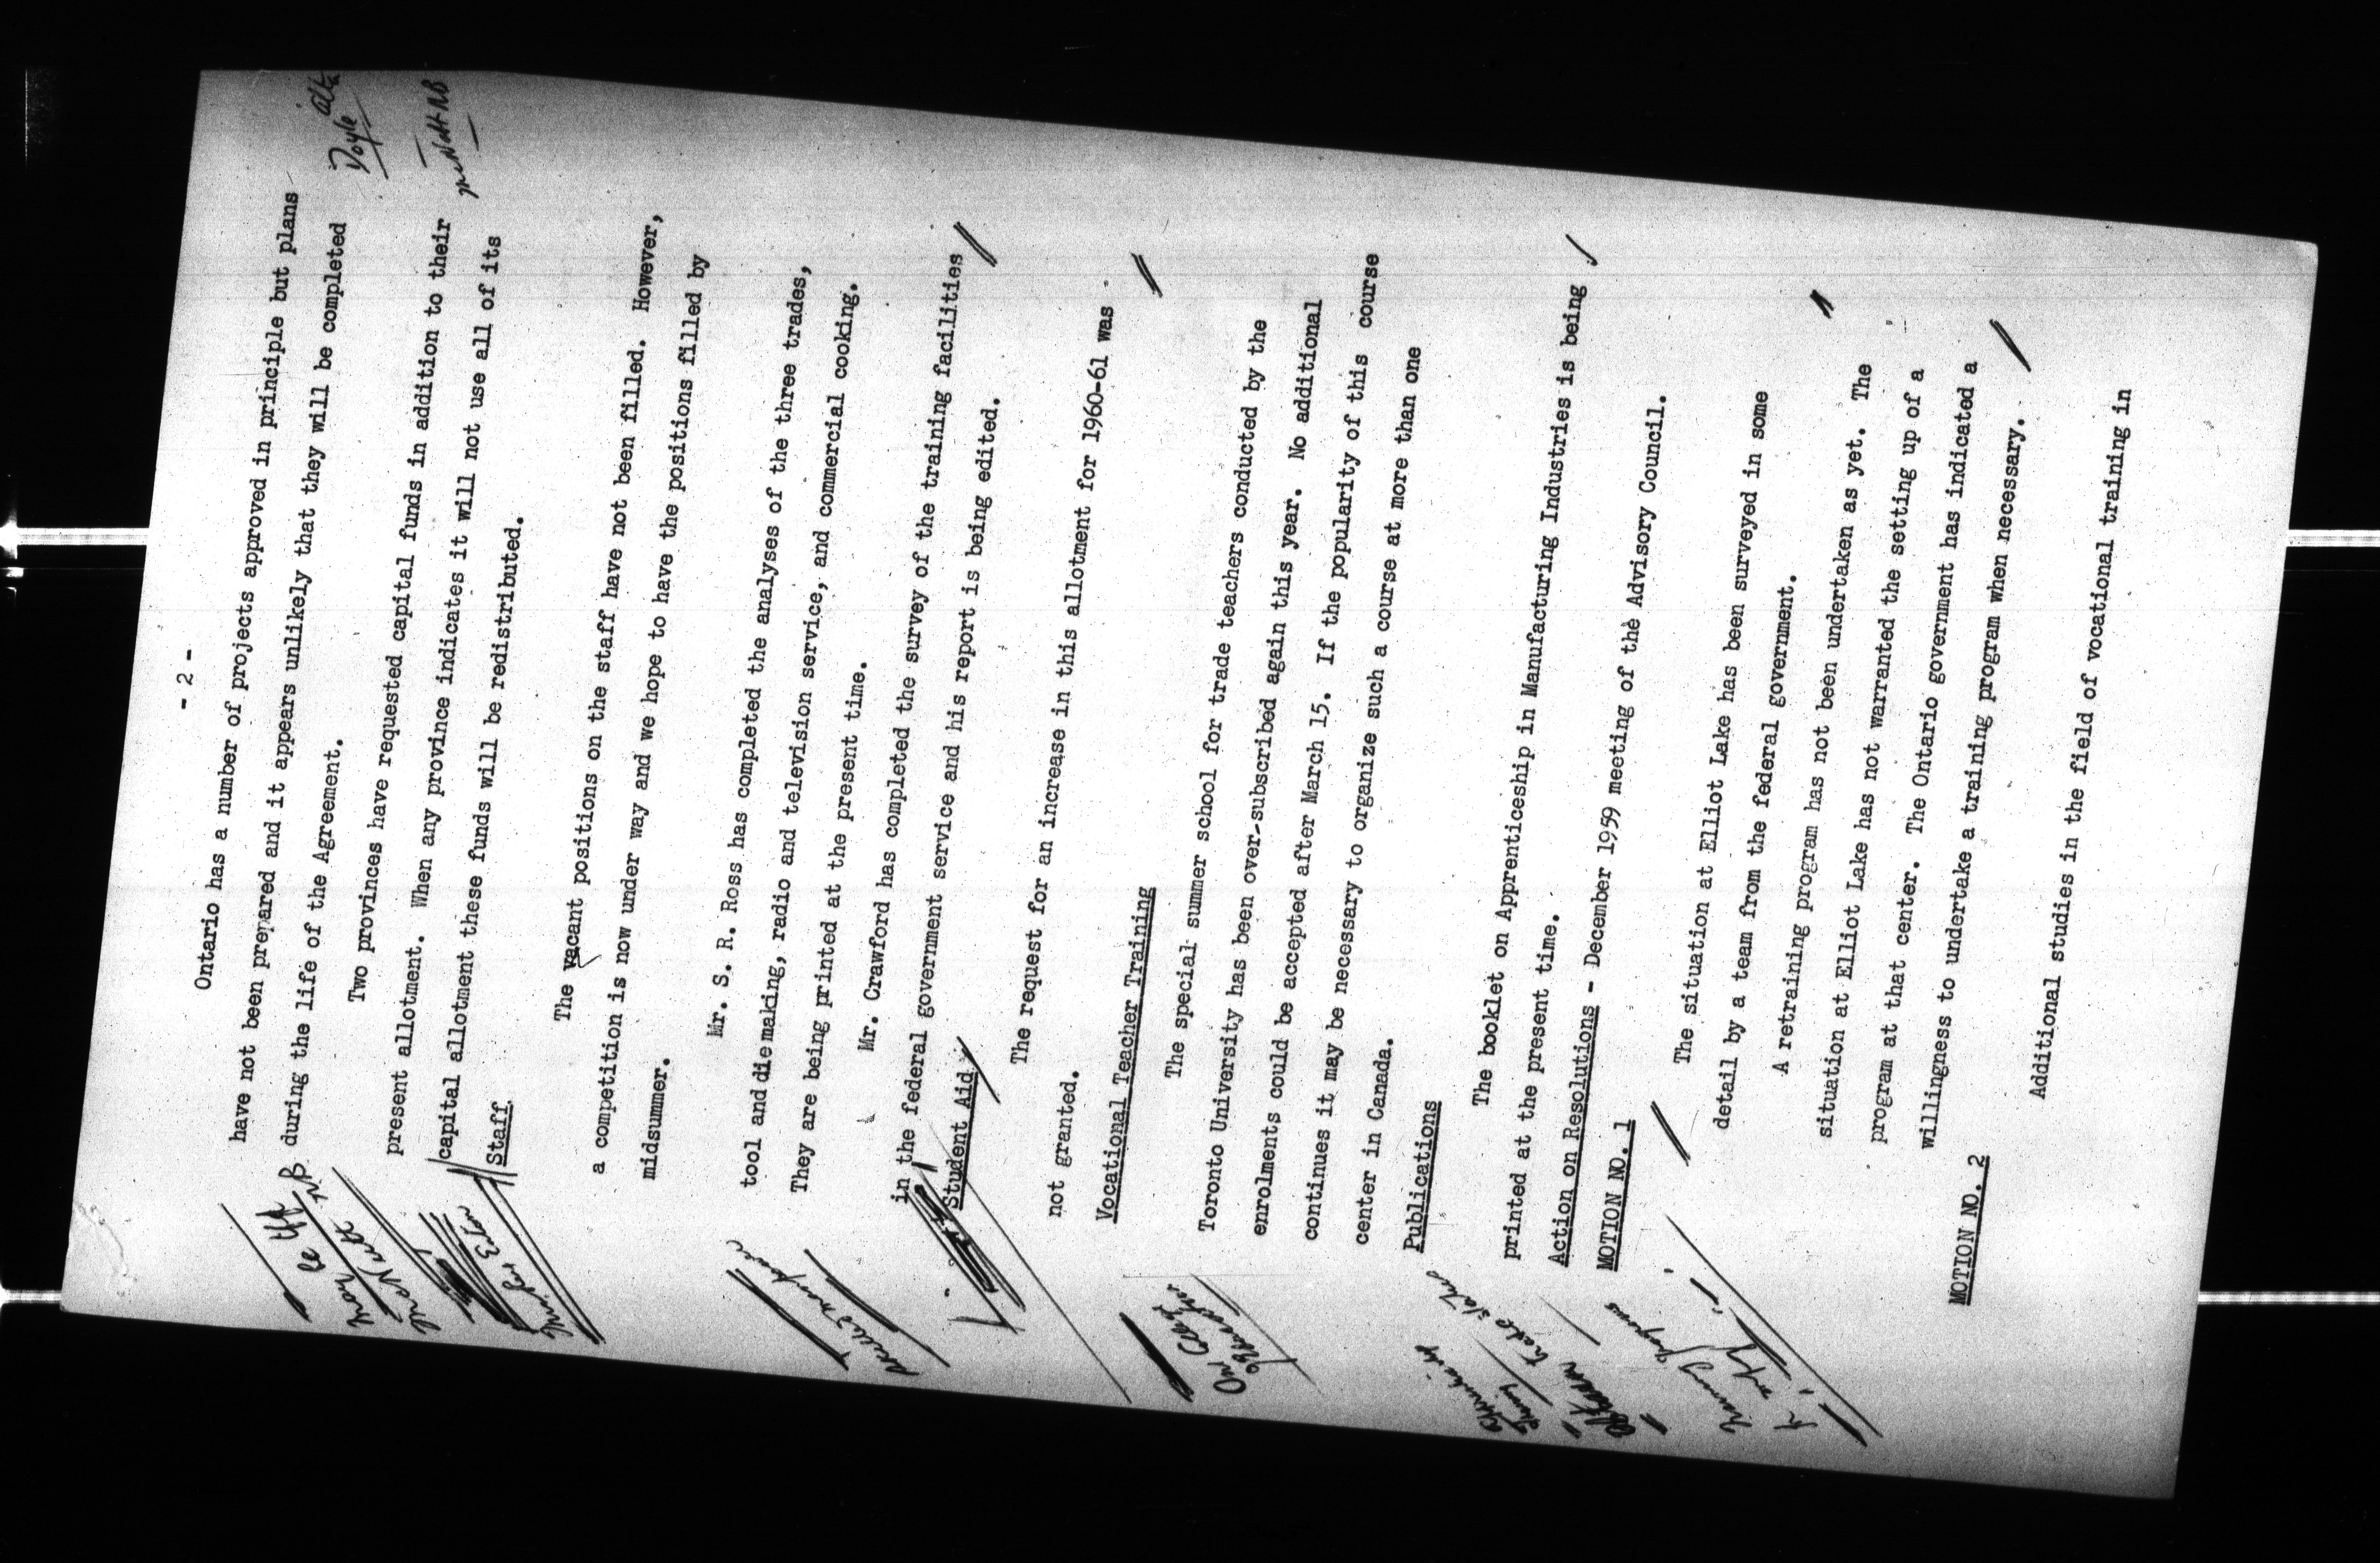 - 2 -
Ontario has a number of projects approved in principle but plans
have not been prepared and it appears unlikely that they will be completed
during the life of the Agreement.
Doyle
Two provinces have requested capital funds in addition to their
present allotment. When any province indicates it will not use all of its
capital allotment these funds will be redistributed.
McNutt NB
Staff
The vacant positions on the staff have not been filled. However,
a competition is now under way and we hope to have the positions filled by
midsummer.
Mr. S. R. Ross has completed the analyses of the three trades,
tool and diemaking, radio and television service, and commercial cooking.
They are being printed at the present time.
Mr. Crawford has completed the survey of the training facilities
in the federal government service and his report is being edited.
Student Aid
The request for an increase in this allotment for 1960-61 was
not granted.
Vocational Teacher Training
The special summer school for trade teachers conducted by the
Toronto University has been over-subscribed again this year. No additional
enrolments could be accepted after March 15. If the popularity of this course
continues it may be necessary to organize such a course at more than one
center in Canada.
Publications
The booklet on Apprenticeship in Manufacturing Industries is being
printed at the present time.
Action on Resolutions - December 1959 meeting of the Advisory Council.
MOTION NO. 1
The situation at Elliot Lake has been surveyed in some
detail by a team from the federal government.
A retraining program has not been undertaken as yet. The
situation at Elliot Lake has not warranted the setting up of a
program at that center. The Ontario government has indicated a
willingness to undertake a training program when necessary.
MOTION NO. 2
Additional studies in the field of vocational training in